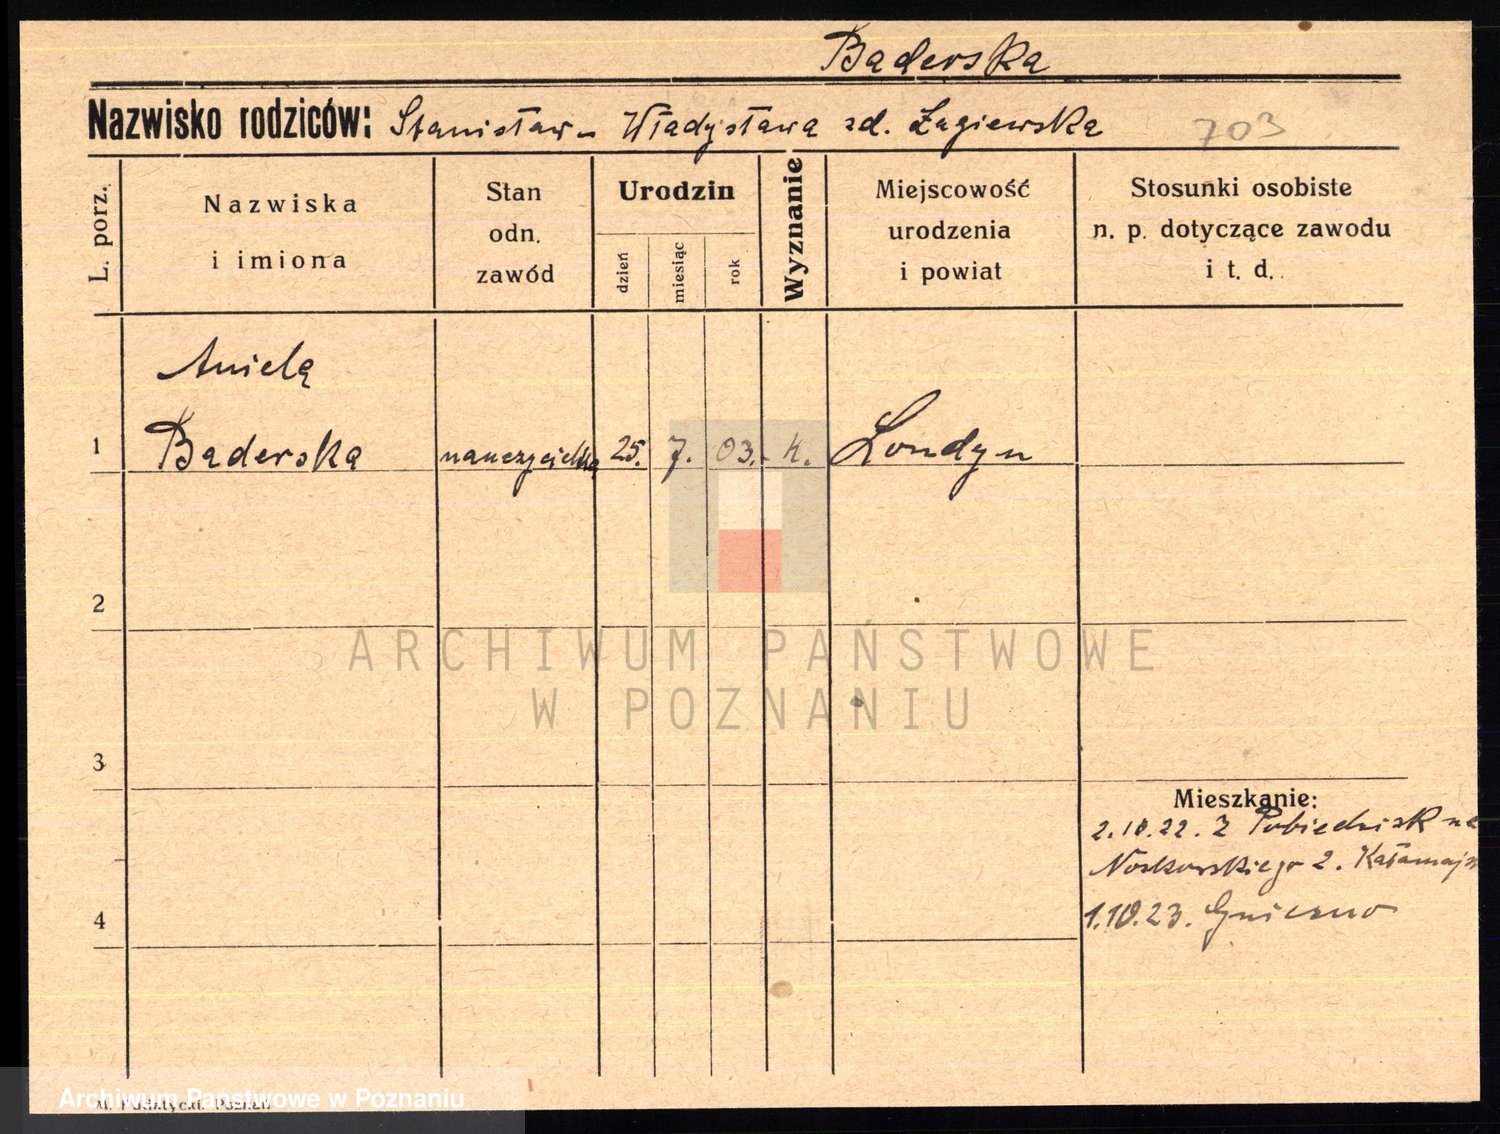 Baderska
Nazwisko rodziców: Stanisław - Władysława zd. Łagiewska 703
L. porz.
Nazwiska
i imiona
Stan
odn.
zawód
Urodzin
dzień
miesiąc
rok
Wyznanie
Miejscowość
urodzenia
i powiat
Stosunki osobiste
n. p. dotyczące zawodu
i t. d.
Aniela
1 Baderska nauczycielka 25. 7. 03. - k. Londyn
2
ARCHIWUM PAŃSTWOWE
W POZNANIU
3
Mieszkanie:
2.10.22. Z Pobiedzisk na
Noskowskiego 2. Kałamajs
4 1.10.23. Gniezno
Archiwum Państwowe w Poznaniu